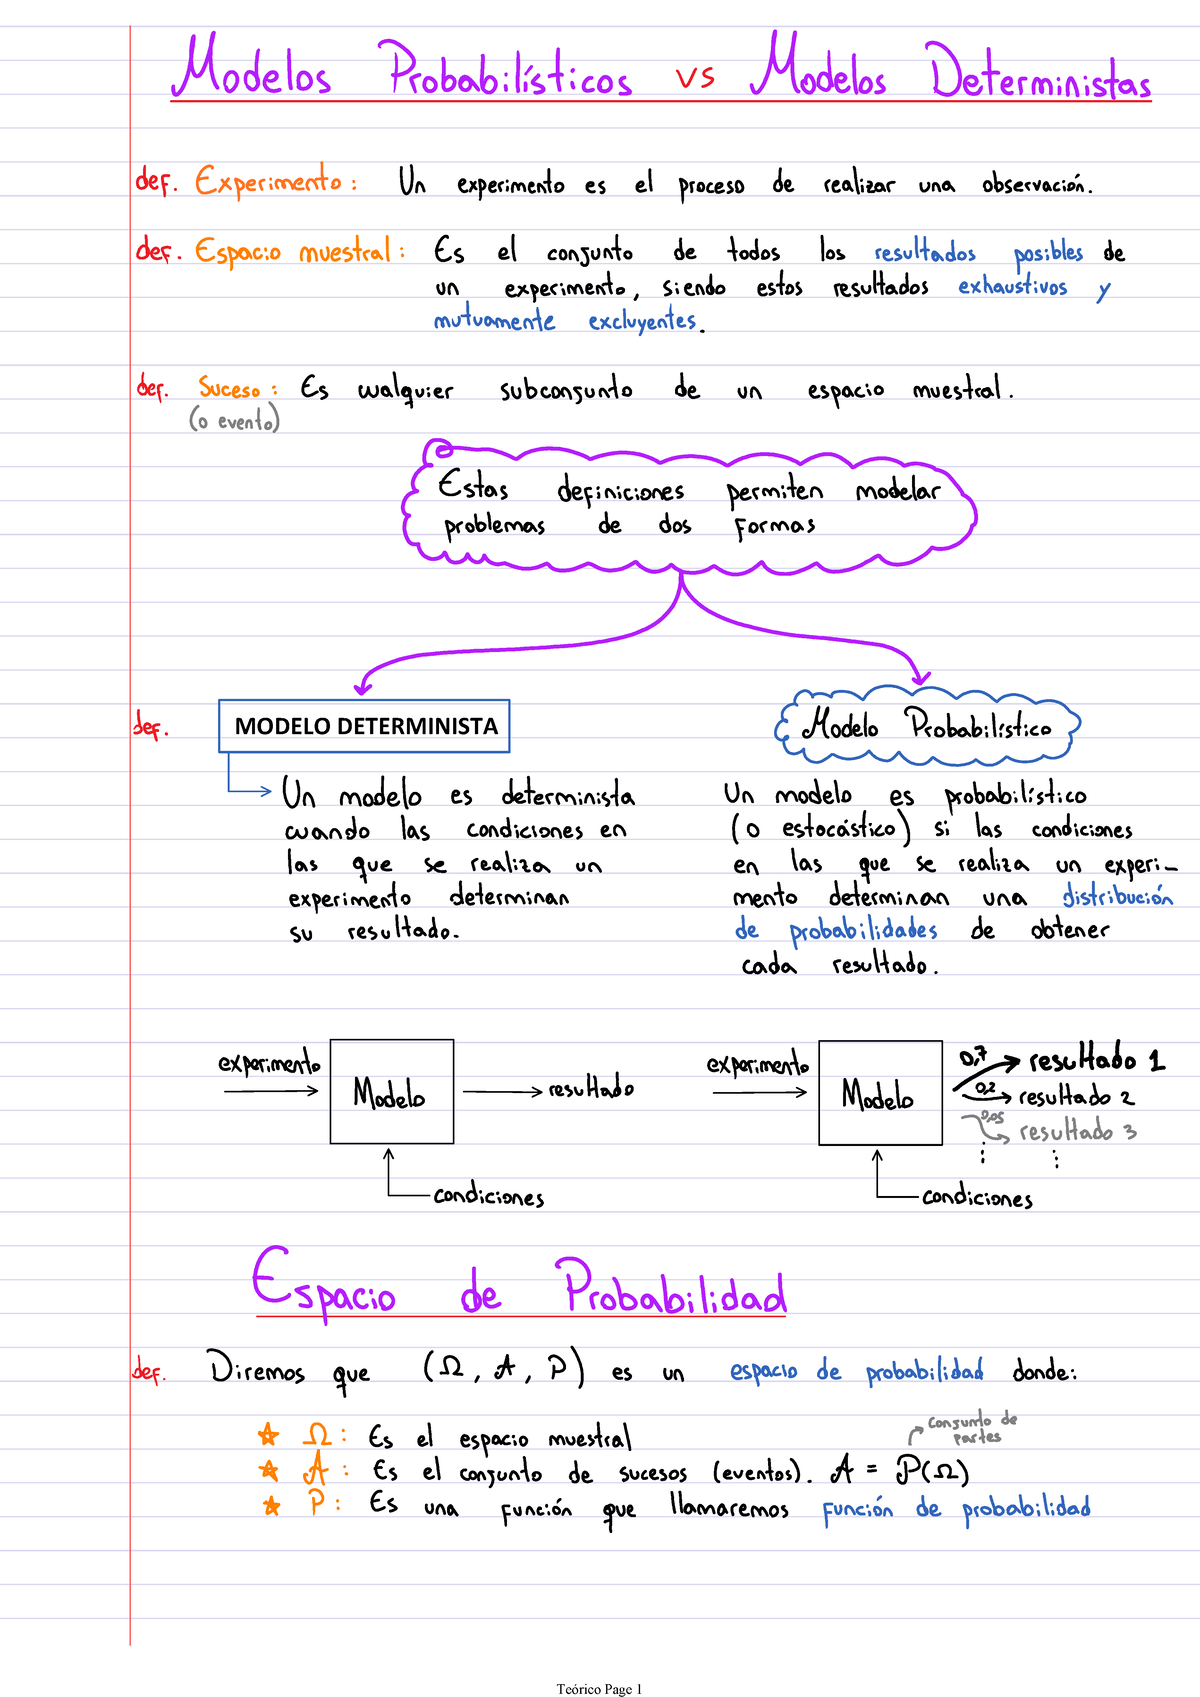 Modelos Probabilísticos vs Modelos Deterministas
def. Experimento: Un experimento es el proceso de realizar una observación.
def. Espacio muestral: Es el conjunto de todos los resultados posibles de
un experimento, siendo estos resultados exhaustivos y
mutuamente excluyentes.
def. Suceso: Es cualquier subconjunto de un espacio muestral.
(o evento)
Estas definiciones permiten modelar
problemas de dos formas
def. MODELO DETERMINISTA
Un modelo es determinista
cuando las condiciones en
las que se realiza un
experimento determinan
su resultado.
Modelo Probabilístico
Un modelo es probabilístico
(o estocástico) si las condiciones
en las que se realiza un experi-
mento determinan una distribución
de probabilidades de obtener
cada resultado.
experimento
Modelo
resultado
condiciones
experimento
Modelo
0,7 resultado 1
0,2 resultado 2
0,05 resultado 3
condiciones
Espacio de Probabilidad
def. Diremos que (Ω, A, P) es un espacio de probabilidad donde:
Conjunto de
partes
Ω: Es el espacio muestral
A: Es el conjunto de sucesos (eventos). A = P(Ω)
P: Es una función que llamaremos función de probabilidad
Teórico Page 1